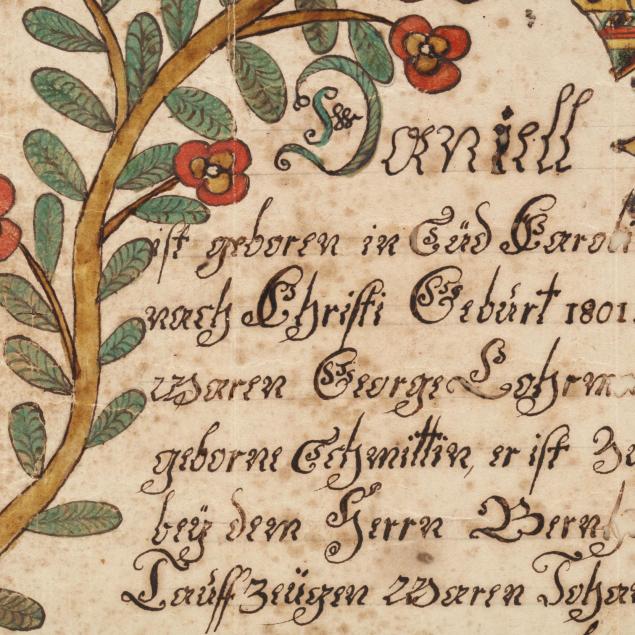 Daniell
ist geboren in Süd Caroli
nach Christi Gebürt 1801.
Waren George Lohrma
geborne Schmittin, er ist Zu
bey dem Herrn Bernh
Tauff Zeügen Waren Joha